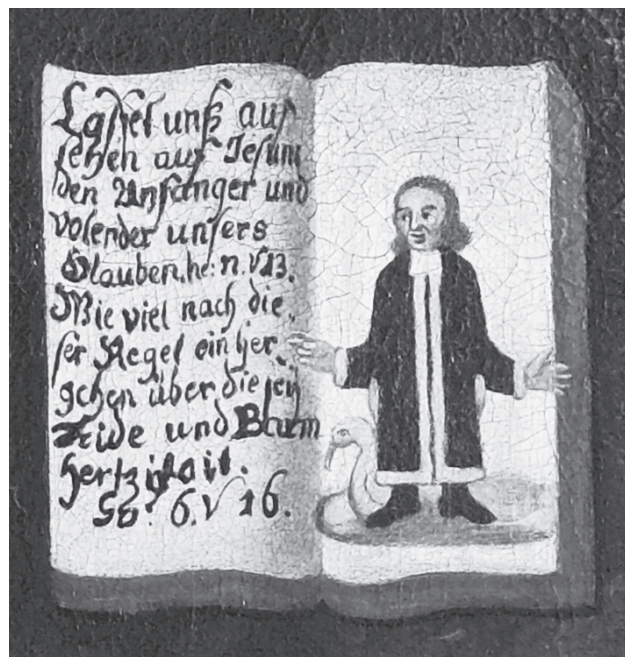 Lasset unß auf
sehen auf Jesum
den Anfänger und
volender unsers
Glauben. he: n. v 13.
Wie viel nach die
ser Regel ein her
gehen über die sey
Fride und Barm
hertzigkait.
Ga: 6. v 16.